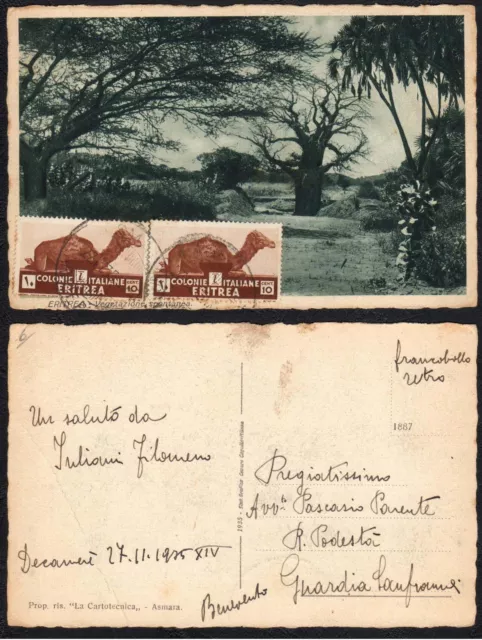 COLONIE ITALIANE
ERITREA
CENT.
10
COLONIE ITALIANE
ERITREA
CENT.
10
ERITREA - Vegetazione spontanea.
francobollo
retro
1887
Un saluto da
Iuliani Filomeno
Decamerè 27.11.1935 XIV
Pregiatissimo
Avv. Pascasio Parente
R. Podestà
Guardia Sanframondi
Benevento
Prop. ris. "La Cartotecnica„ - Asmara.